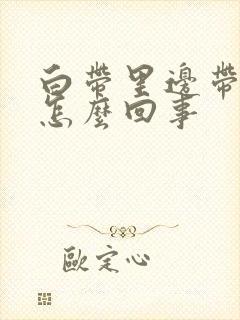 白帶里邊帶
怎麼回事
歐定心